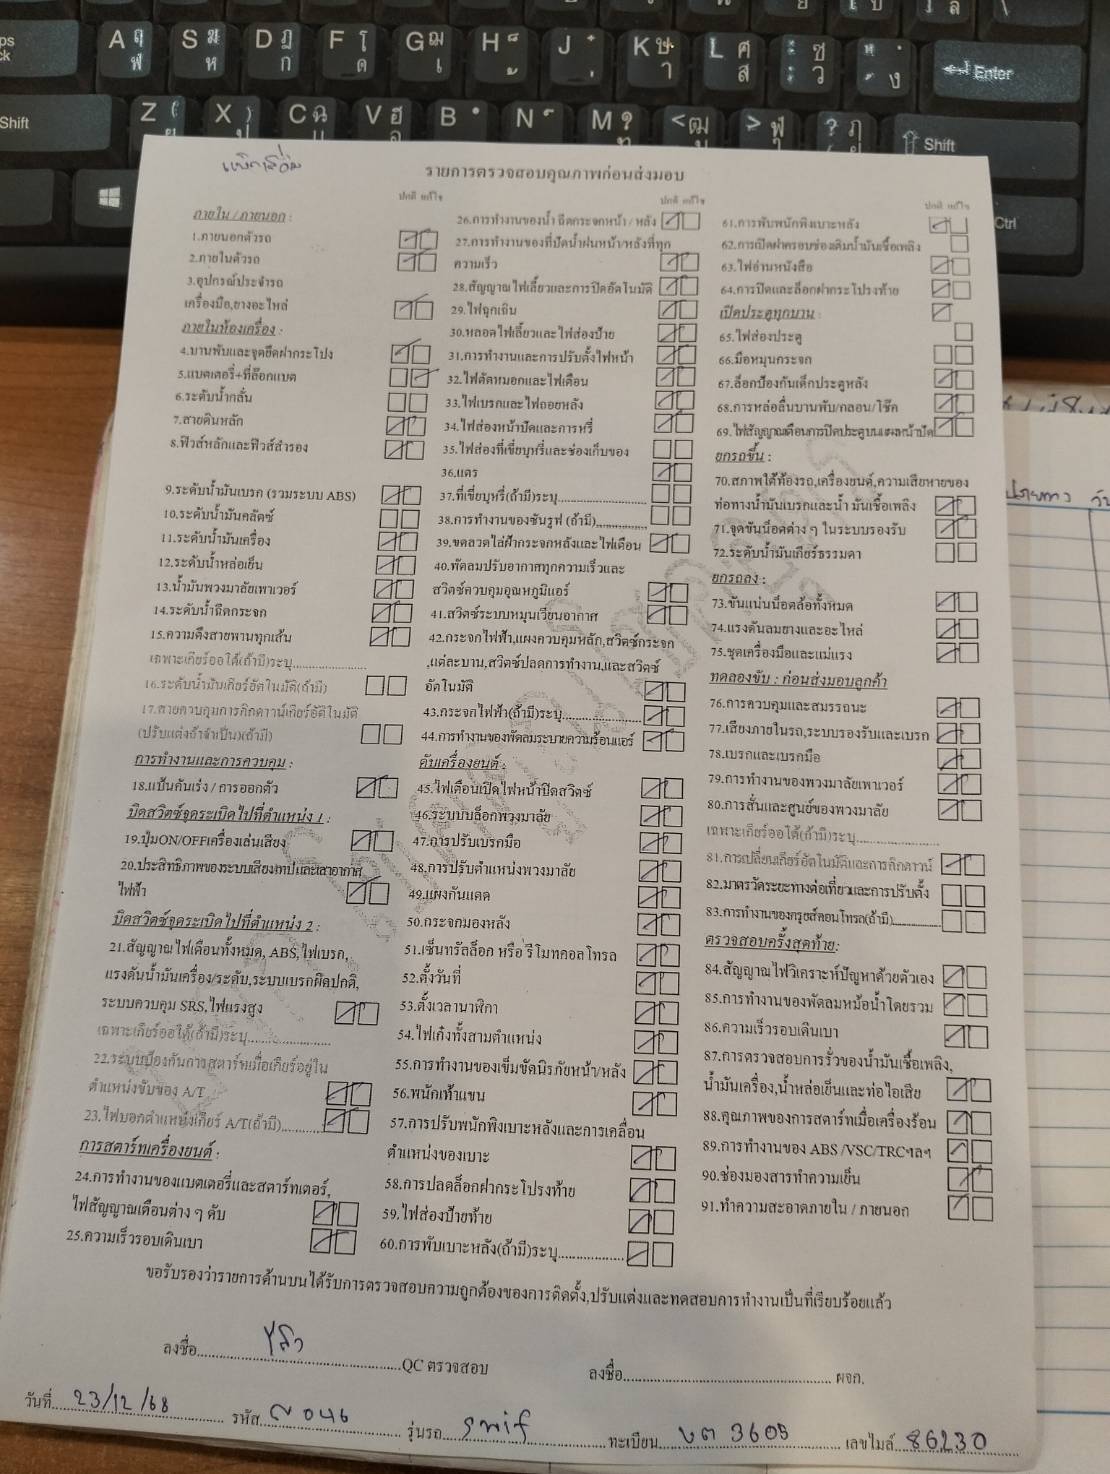 รายการตรวจสอบคุณภาพก่อนส่งมอบ
ปกติ แก้ไข
ภายใน / ภายนอก :
1.ภายนอกตัวรถ
2.ภายในตัวรถ
3.อุปกรณ์ประจำรถ
เครื่องมือ,ยางอะไหล่
ภายในห้องเครื่อง :
4.บานพับและจุดยึดฝากระโปรง
5.แบตเตอรี่+ที่ล็อกแบต
6.ระดับน้ำกลั่น
7.สายดินหลัก
8.ฟิวส์หลักและฟิวส์สำรอง
9.ระดับน้ำมันเบรก (รวมระบบ ABS)
10.ระดับน้ำมันคลัตซ์
11.ระดับน้ำมันเครื่อง
12.ระดับน้ำหล่อเย็น
13.น้ำมันพวงมาลัยเพาเวอร์
14.ระดับน้ำฉีดกระจก
15.ความตึงสายพานทุกเส้น
เฉพาะเกียร์ออโต้(ถ้ามี)ระบุ
16.ระดับน้ำมันเกียร์อัตโนมัติ(ถ้ามี)
17.สายควบคุมการคิกดาวน์เกียร์อัตโนมัติ
(ปรับแต่งถ้าจำเป็น)(ถ้ามี)
การทำงานและการควบคุม :
18.แป้นคันเร่ง / การออกตัว
บิดสวิตช์จุดระเบิดไปที่ตำแหน่ง 1 :
19.ปุ่มON/OFFเครื่องเล่นเสียง
20.ประสิทธิภาพของระบบเสียงเทปและเสาอากาศ
ไฟฟ้า
บิดสวิตช์จุดระเบิดไปที่ตำแหน่ง 2 :
21.สัญญาณไฟเตือนทั้งหมด, ABS,ไฟเบรก,
แรงดันน้ำมันเครื่อง/ระดับ,ระบบเบรกผิดปกติ,
ระบบควบคุม SRS,ไฟแรงสูง
เฉพาะเกียร์ออโต้(ถ้ามี)ระบุ
22.ระบบป้องกันการสตาร์ทเมื่อเกียร์อยู่ใน
ตำแหน่งขับของ A/T
23.ไฟบอกตำแหน่งเกียร์ A/T(ถ้ามี)
การสตาร์ทเครื่องยนต์ :
24.การทำงานของแบตเตอรี่และสตาร์ทเตอร์,
ไฟสัญญาณเตือนต่าง ๆ ดับ
25.ความเร็วรอบเดินเบา
ปกติ แก้ไข
26.การทำงานของน้ำฉีดกระจกหน้า / หลัง
27.การทำงานของที่ปัดน้ำฝนหน้า/หลังที่ทุก
ความเร็ว
28.สัญญาณไฟเลี้ยวและการปิดอัตโนมัติ
29.ไฟฉุกเฉิน
30.หลอดไฟเลี้ยวและไฟส่องป้าย
31.การทำงานและการปรับตั้งไฟหน้า
32.ไฟตัดหมอกและไฟเตือน
33.ไฟเบรกและไฟถอยหลัง
34.ไฟส่องหน้าปัดและการหรี่
35.ไฟส่องที่เขี่ยบุหรี่และช่องเก็บของ
36.แตร
37.ที่เขี่ยบุหรี่(ถ้ามี)ระบุ
38.การทำงานของซันรูฟ (ถ้ามี)
39.ขดลวดไล่ฝ้ากระจกหลังและไฟเตือน
40.พัดลมปรับอากาศทุกความเร็วและ
สวิตช์ควบคุมอุณหภูมิแอร์
41.สวิตช์ระบบหมุนเวียนอากาศ
42.กระจกไฟฟ้า,แผงควบคุมหลัก,สวิตช์กระจก
,แต่ละบาน,สวิตช์ปลดการทำงาน,และสวิตช์
อัตโนมัติ
43.กระจกไฟฟ้า(ถ้ามี)ระบุ
44.การทำงานของพัดลมระบายความร้อนแอร์
ดับเครื่องยนต์ :
45.ไฟเตือนเปิดไฟหน้าปิดสวิตช์
46.ระบบบล็อกพวงมาลัย
47.การปรับเบรกมือ
48.การปรับตำแหน่งพวงมาลัย
49.แผงกันแดด
50.กระจกมองหลัง
51.เซ็นทรัลล็อก หรือ รีโมทคอลโทรล
52.ตั้งวันที่
53.ตั้งเวลานาฬิกา
54.ไฟเก๋งทั้งสามตำแหน่ง
55.การทำงานของเข็มขัดนิรภัยหน้า/หลัง
56.พนักเท้าแขน
57.การปรับพนักพิงเบาะหลังและการเคลื่อน
ตำแหน่งของเบาะ
58.การปลดล็อกฝากระโปรงท้าย
59.ไฟส่องป้ายท้าย
60.การพับเบาะหลัง(ถ้ามี)ระบุ
ปกติ แก้ไข
61.การพับพนักพิงเบาะหลัง
62.การเปิดฝาครอบช่องเติมน้ำมันเชื้อเพลิง
63.ไฟอ่านหนังสือ
64.การปิดและล็อกฝากระโปรงท้าย
เปิดประตูทุกบาน :
65.ไฟส่องประตู
66.มือหมุนกระจก
67.ล็อกป้องกันเด็กประตูหลัง
68.การหล่อลื่นบานพับ/กลอน/โช๊ค
69.ไฟสัญญาณเตือนการปิดประตูบนแผงหน้าปัด
ยกรถขึ้น :
70.สภาพใต้ท้องรถ,เครื่องยนต์,ความเสียหายของ
ท่อทางน้ำมันเบรกและน้ำมันเชื้อเพลิง
71.จุดขันน็อตต่าง ๆ ในระบบรองรับ
72.ระดับน้ำมันเกียร์ธรรมดา
ยกรถลง :
73.ขันแน่นน็อตล้อทั้งหมด
74.แรงดันลมยางและอะไหล่
75.ชุดเครื่องมือและแม่แรง
ทดลองขับ : ก่อนส่งมอบลูกค้า
76.การควบคุมและสมรรถนะ
77.เสียงภายในรถ,ระบบรองรับและเบรก
78.เบรกและเบรกมือ
79.การทำงานของพวงมาลัยเพาเวอร์
80.การสั่นและศูนย์ของพวงมาลัย
เฉพาะเกียร์ออโต้(ถ้ามี)ระบุ
81.การเปลี่ยนเกียร์อัตโนมัติและการคิกดาวน์
82.มาตรวัดระยะทางต่อเที่ยวและการปรับตั้ง
83.การทำงานของครูยส์คอนโทรล(ถ้ามี)
ตรวจสอบครั้งสุดท้าย:
84.สัญญาณไฟวิเคราะห์ปัญหาด้วยตัวเอง
85.การทำงานของพัดลมหม้อน้ำโดยรวม
86.ความเร็วรอบเดินเบา
87.การตรวจสอบการรั่วของน้ำมันเชื้อเพลิง,
น้ำมันเครื่อง,น้ำหล่อเย็นและท่อไอเสีย
88.คุณภาพของการสตาร์ทเมื่อเครื่องร้อน
89.การทำงานของ ABS /VSC/TRCฯลฯ
90.ช่องมองสารทำความเย็น
91.ทำความสะอาดภายใน / ภายนอก
ขอรับรองว่ารายการด้านบนได้รับการตรวจสอบความถูกต้องของการติดตั้ง,ปรับแต่งและทดสอบการทำงานเป็นที่เรียบร้อยแล้ว
ลงชื่อ QC ตรวจสอบ ลงชื่อ ผจก.
วันที่ 23/12/68 รหัส ๙046 รุ่นรถ swif ทะเบียน 3605 เลขไมล์ 86230